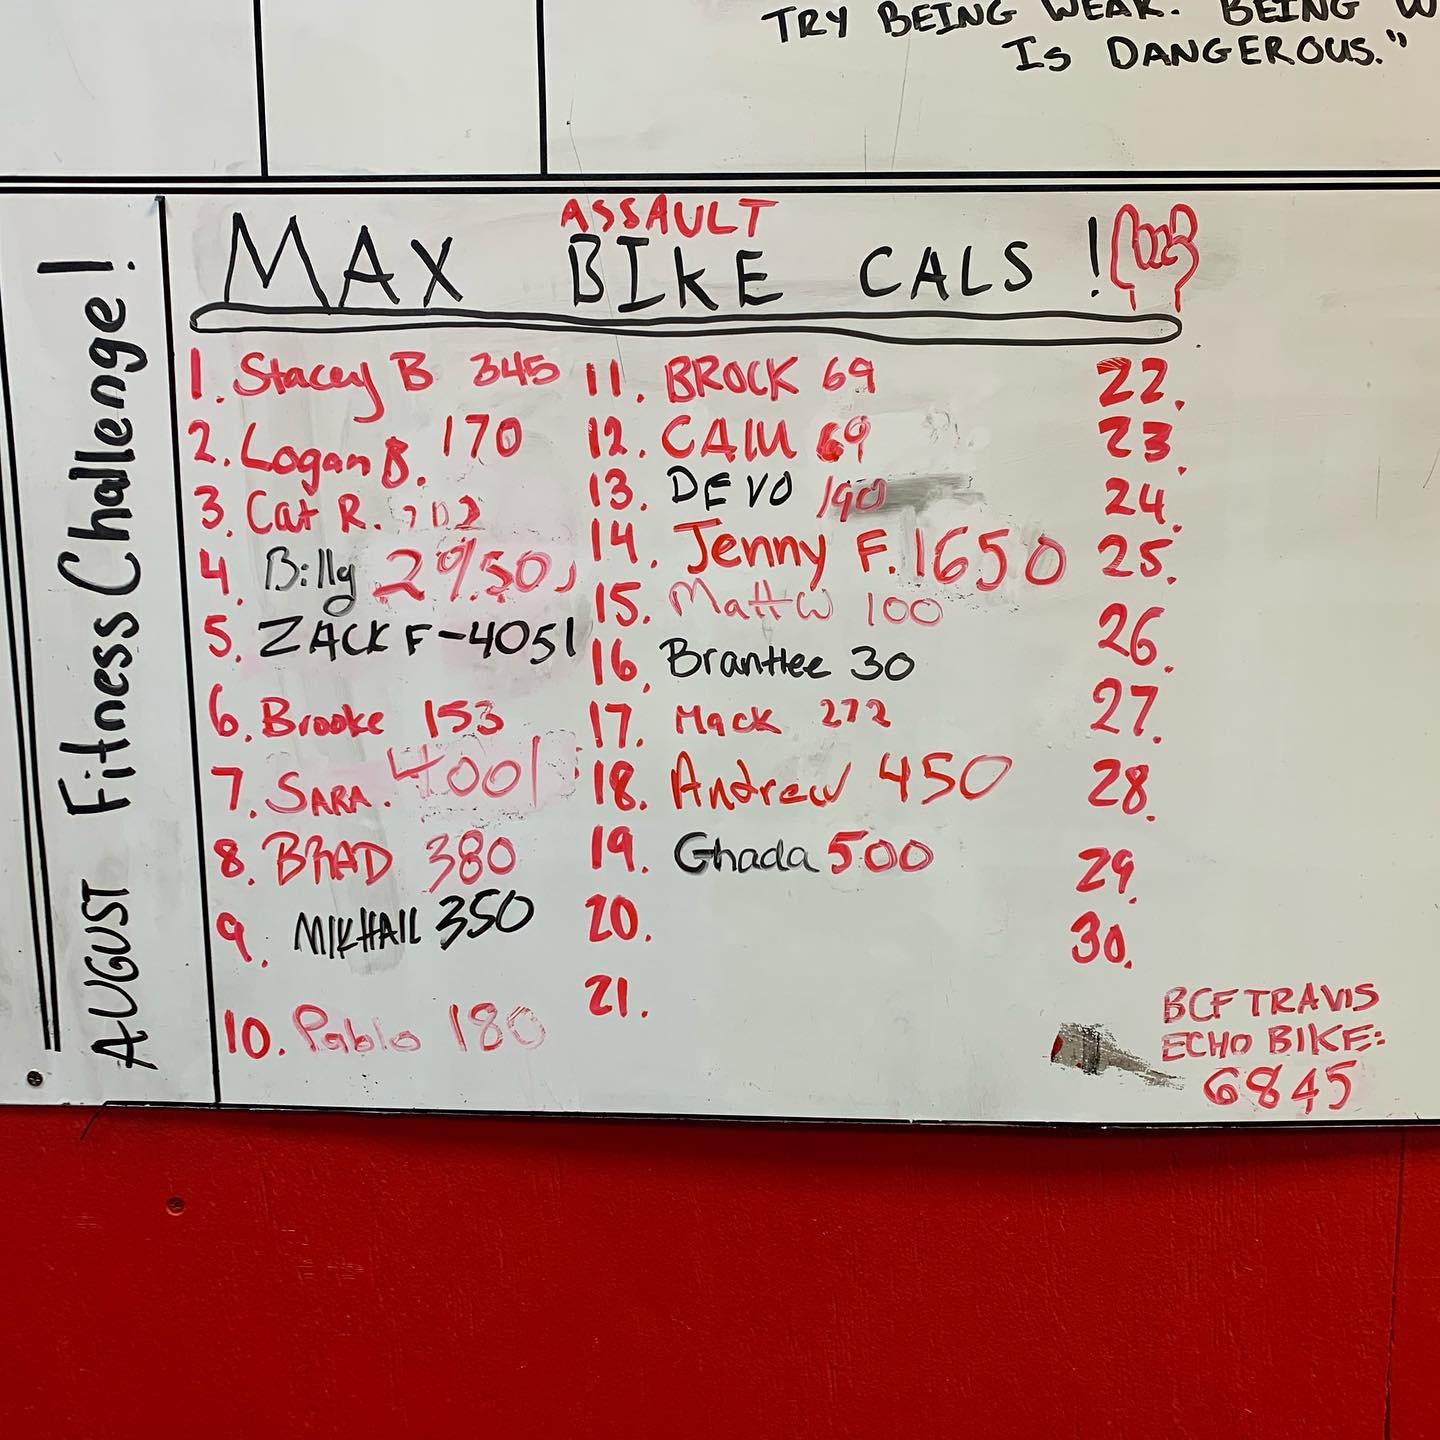 TRY BEING WEAK. BEING W
IS DANGEROUS."
AUGUST Fitness Challenge!
ASSAULT
MAX BIKE CALS !
1. Stacey B 345
2. Logan B. 170
3. Cat R.
4. Billy 2950
5. ZACK F-4051
6. Brooke 153
7. SARA. 4001
8. BRAD 380
9. MIKHAIL 350
10. Pablo 180
11. BROCK 69
12. CAM 69
13. DEVO 190
14. Jenny F. 1650
15. Matt W 100
16. Branttee 30
17. Mack 272
18. Andrew 450
19. Ghada 500
20.
21.
22.
23.
24.
25.
26.
27.
28.
29.
30.
BCF TRAVIS
ECHO BIKE:
6845